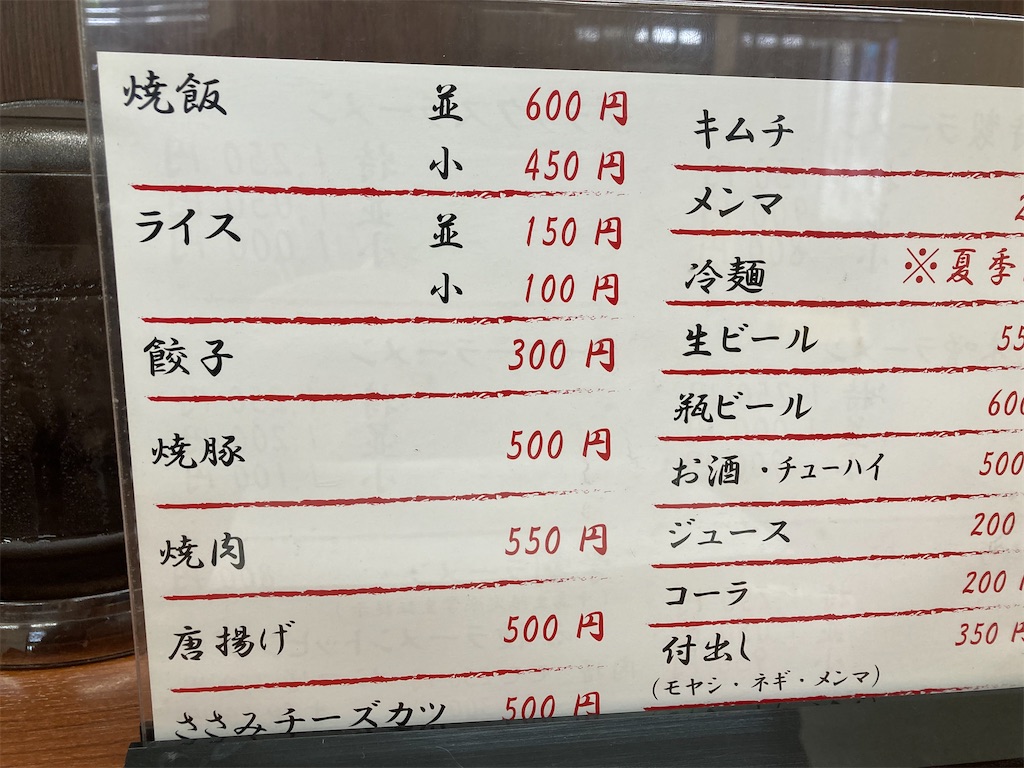 焼飯 並 600円
小 450円
ライス 並 150円
小 100円
餃子 300円
焼豚 500円
焼肉 550円
唐揚げ 500円
ささみチーズカツ 500円
キムチ
メンマ
冷麺 ※夏季
生ビール 55
瓶ビール 600
お酒・チューハイ 500
ジュース 200
コーラ 200
付出し 350円
(モヤシ・ネギ・メンマ)